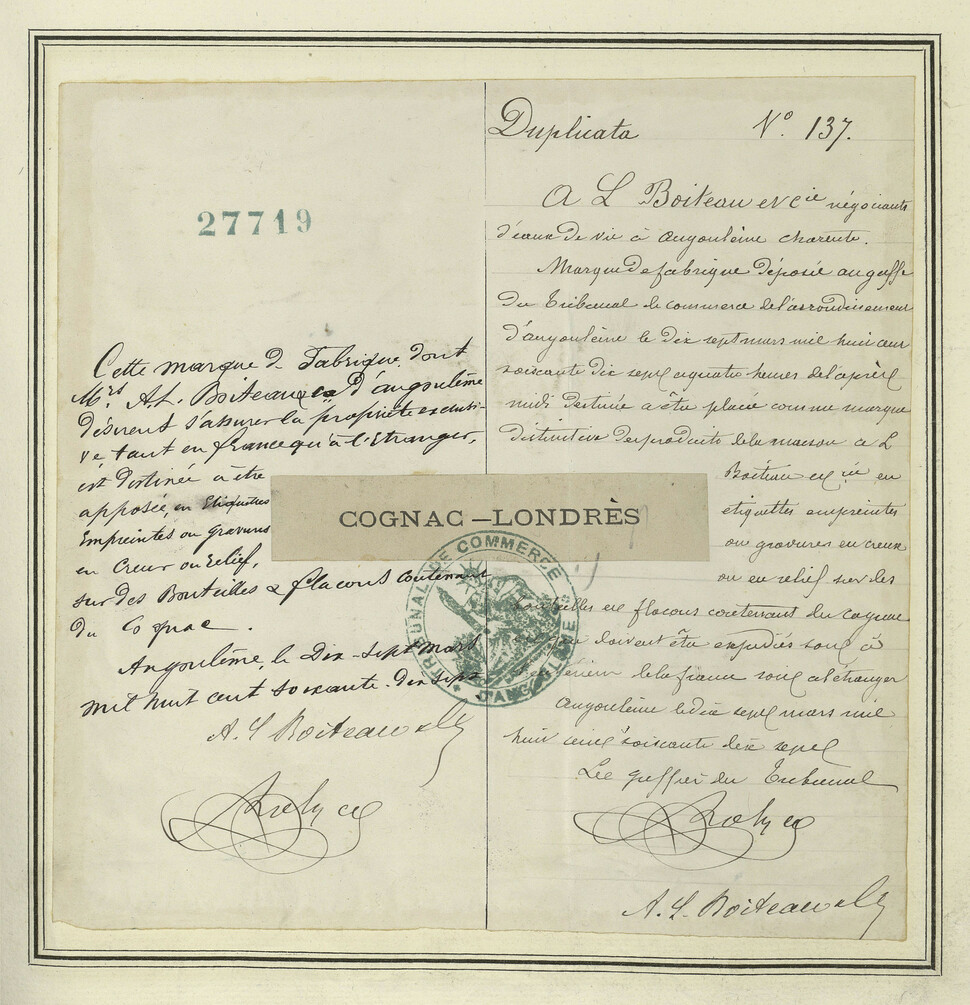 27719
Cette marque de Fabrique dont
Mrs A.L. Boiteau & Cie d'angoulême
désirent s'assurer la propriété exclusi-
ve tant en france qu'à l'Etranger,
est destinée à être
apposée, en Etiquettes
Empreintes ou gravures
en Creux ou relief,
sur des Bouteilles & flacons contenant
du Cognac.
Angoulême, le Dix-sept mars
mil huit cent soixante-dix sept
A. L Boiteau & Cie
Duplicata N° 137.
A L Boiteau et Cie négociants
d'eaux de vie à angoulême charente.
Marque de fabrique déposée au greffe
du Tribunal de commerce de l'arrondissement
d'angoulême le dix sept mars mil huit cent
soixante dix sept a quatre heures de l'après
midi destinée a être placée comme marque
distinctive des produits de la maison A L
Boiteau et Cie en
étiquettes empreintes
ou gravures en creux
ou en relief sur des
bouteilles et flacons contenant du cognac
qui doivent être expédiés soit à
l'intérieur de la france soit à l'étranger
angoulême le dix sept mars mil
huit cent soixante dix sept
Le greffier du Tribunal
A. L. Boiteau & Cie
COGNAC–LONDRÈS
TRIBUNAL DE COMMERCE
D'ANGOULEME